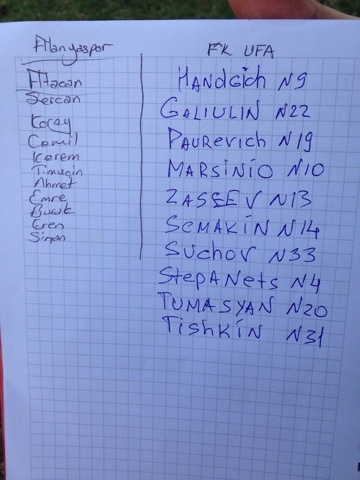 Alanyaspor
Atacan
Sercan
Koray
Camil
Kerem
Timuçin
Ahmet
Emre
Burak
Eren
Sinan
FK UFA
HANDGICH N9
GALIULIN N22
PAUREVICH N19
MARSINIO N10
ZASSEV N13
SEMAKIN N14
SUCHOV N33
StepANets N4
TUMASYAN N20
TISHKIN N31